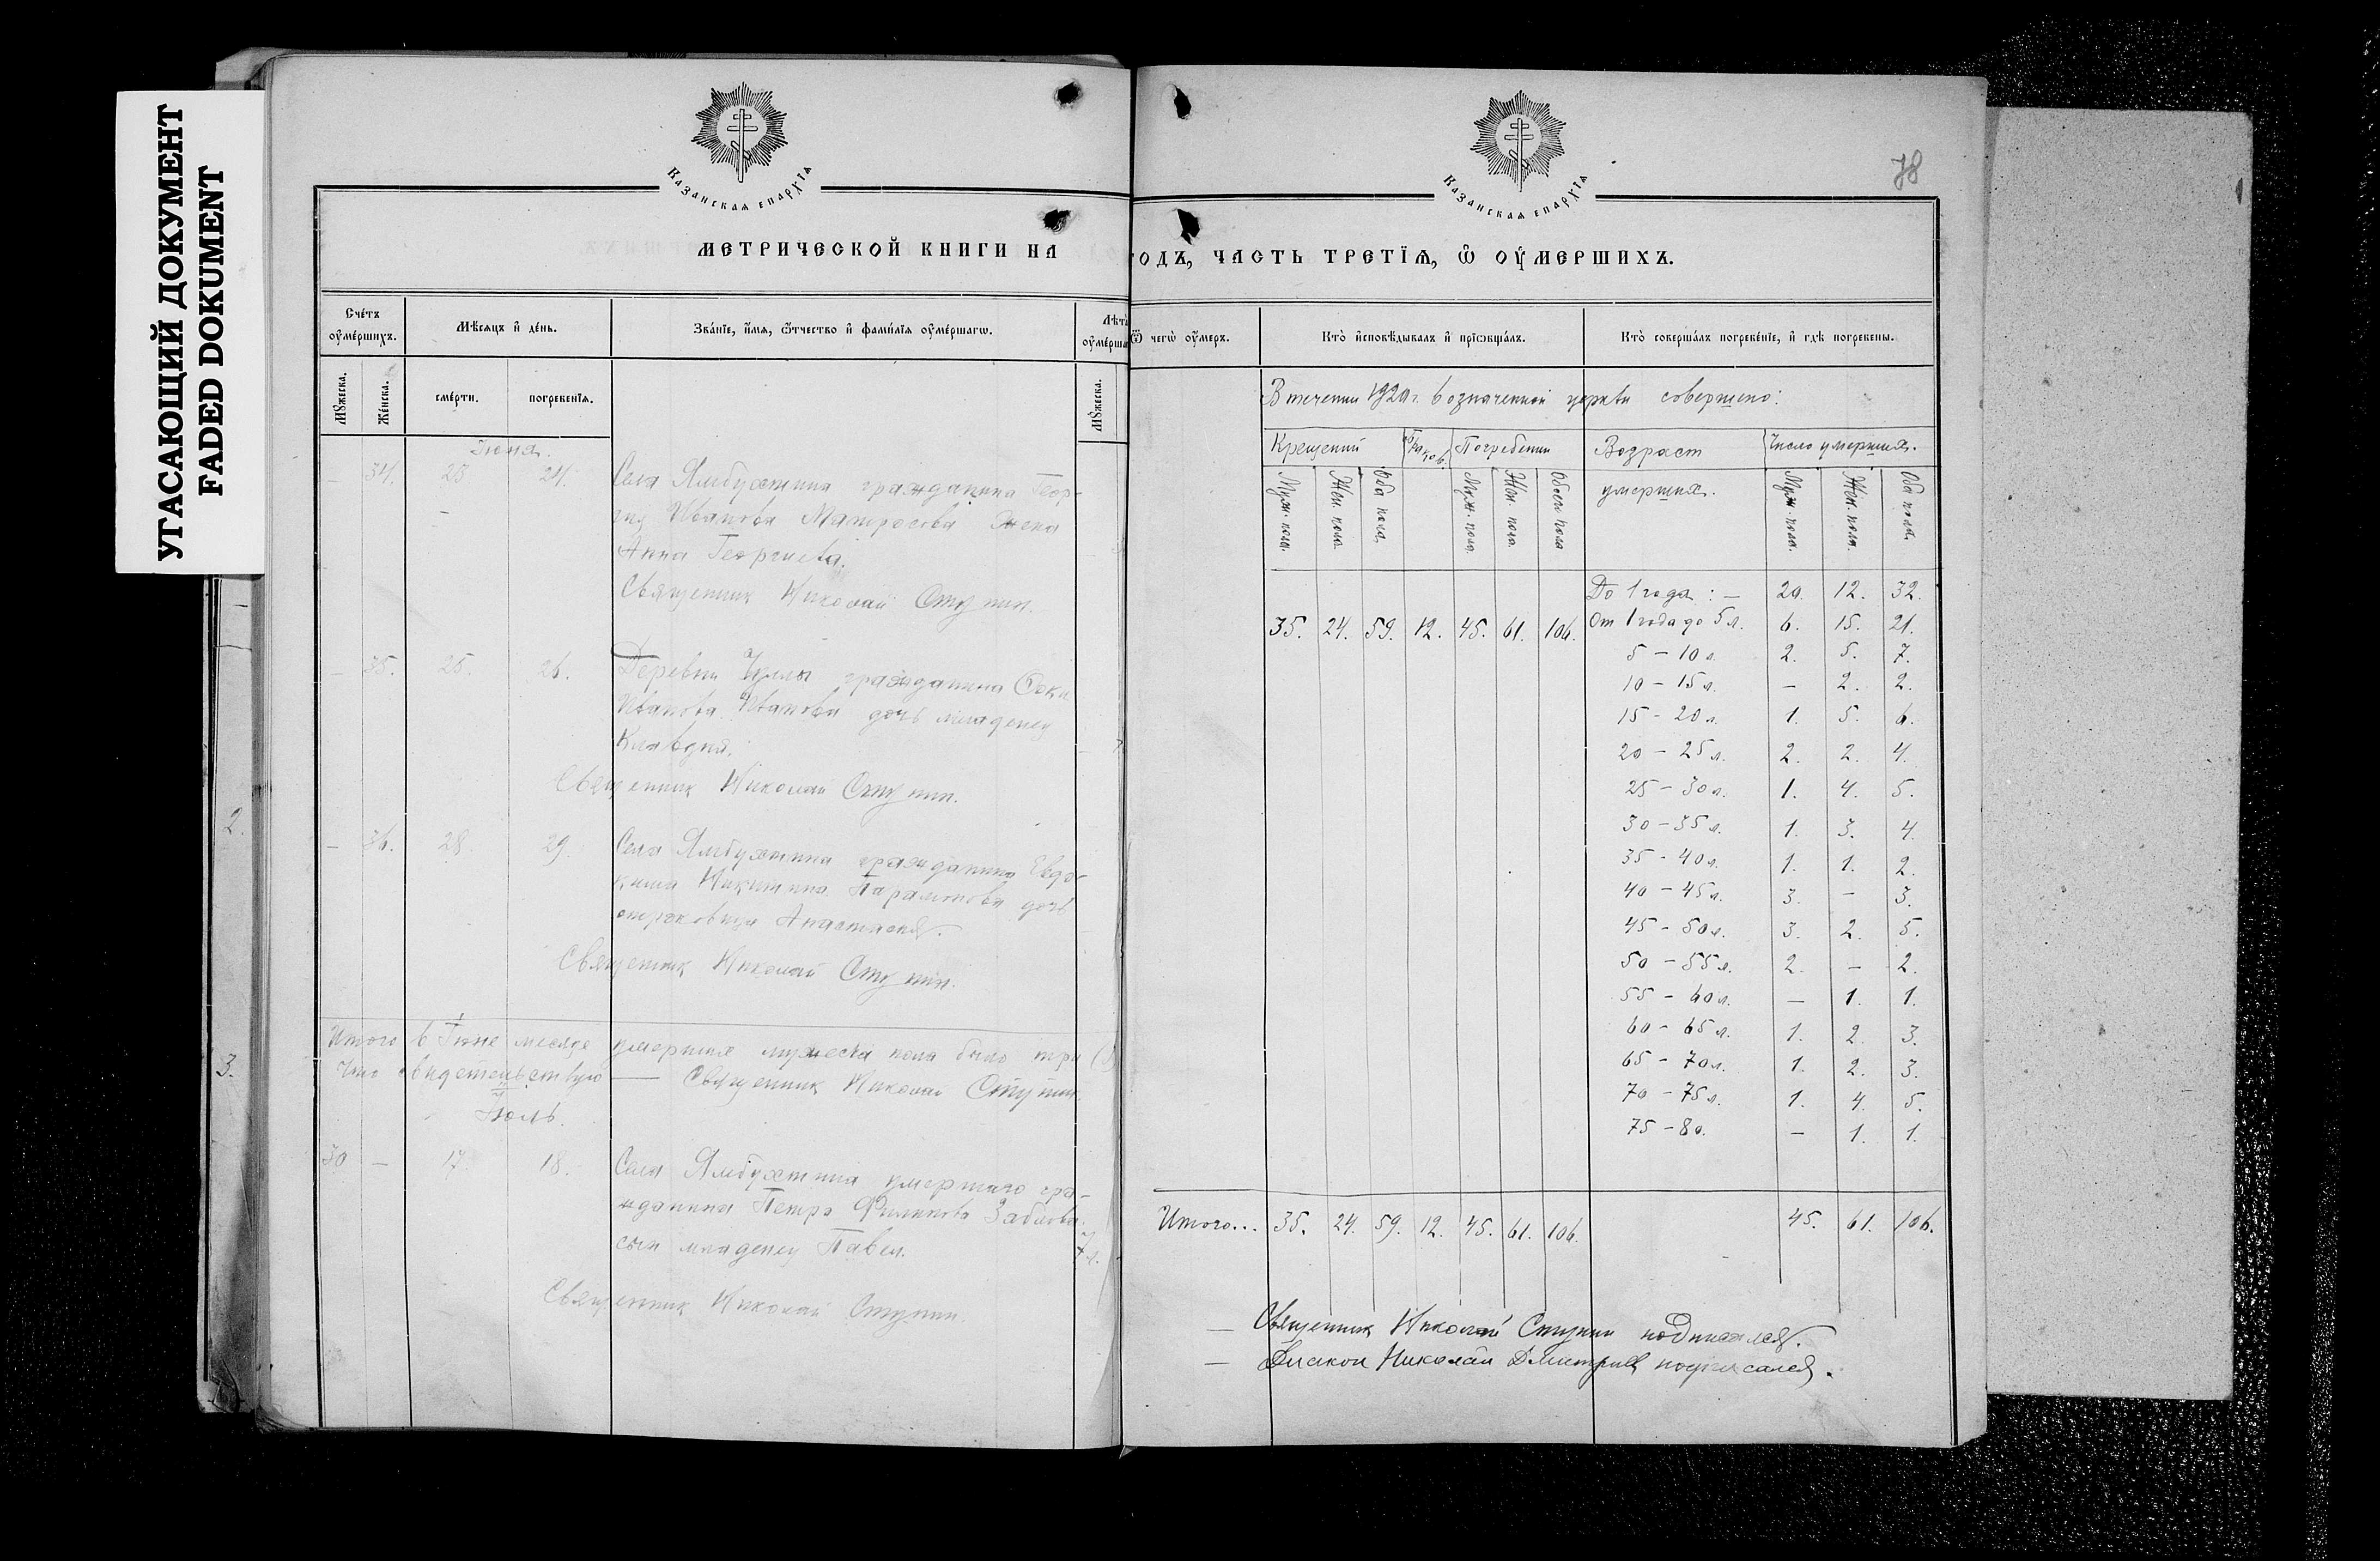 УГАСАЮЩИЙ ДОКУМЕНТ
FADED DOKUMENT
Казанская епархїя
МЕТРИЧЕСКОЙ КНИГИ НА
Счéтъ ѹмéршихъ.
Мѣсяцъ и дéнь.
Звáнїе, и́мя, ѻ́тчество и фами́лїя ѹмéршагѡ.
Лѣтъ
Мꙋжеска.
Жéнска.
смéрти.
погребенїя.
Мꙋжеска.
Июня.
— 34. 23 24. Села Ялбухтина гражданина Геор-
гия Иванова Матросова жена
Анна Георгиева.
Священник Николай Ступин.
— 35. 25. 26. Деревни гражданина
Иванова Иванова дочь младенец
Клавдия.
Священник Николай Ступин.
— 36. 28. 29. Села Ялбухтина гражданина Евдо-
кима Никитина Парамонова дочь
отроковица Анастасия.
Священник Николай Ступин.
Итого в Июне месяце умерших мужеска пола было три
Что свидетельствую — Священник Николай Ступин.
Июль.
30 — 17. 18. Села Ялбухтина умершаго гра-
жданина Петра Филипова
сын младенец Павел. 7 л.
Священник Николай Ступин.
78
Казанская епархїя
ОДЪ, ЧАСТЬ ТРЕТЇЯ, Ѡ ОУМЕРШИХЪ.
Ѿ чегѡ̀ ѹ́меръ.
Ктò исповѣ́дывалъ и прїѡбщáлъ.
Ктò совершáлъ погребéнїе, и гдѣ̀ погребены.
В течении 1920 г. в означенной церкви совершено:
Крещений Браков Погребении Возраст умерших. Число умерших.
Муж. пола. Жен. пола. Оба пола. Муж. пола. Жен. пола. Обоего пола Муж. пола. Жен. пола. Оба пола.
До 1 года: — 20. 12. 32.
35. 24. 59. 12. 45. 61. 106. От 1 года до 5 л. 6. 15. 21.
5 – 10 л. 2. 5. 7.
10 – 15 л. — 2. 2.
15 – 20 л. 1. 5. 6.
20 – 25 л. 2. 2. 4.
25 – 30 л. 1. 4. 5.
30 – 35 л. 1. 3. 4.
35 – 40 л. 1. 1. 2.
40 – 45 л. 3. — 3.
45 – 50 л. 3. 2. 5.
50 – 55 л. 2. — 2.
55 – 60 л. — 1. 1.
60 – 65 л. 1. 2. 3.
65 – 70 л. 1. 2. 3.
70 – 75 л. 1. 4. 5.
75 – 80. — 1. 1.
Итого... 35. 24. 59. 12. 45. 61. 106. 45. 61. 106.
— Священник Николай Ступин подписался.
— Диакон Николай Дмитриев подписался.
2.
3.